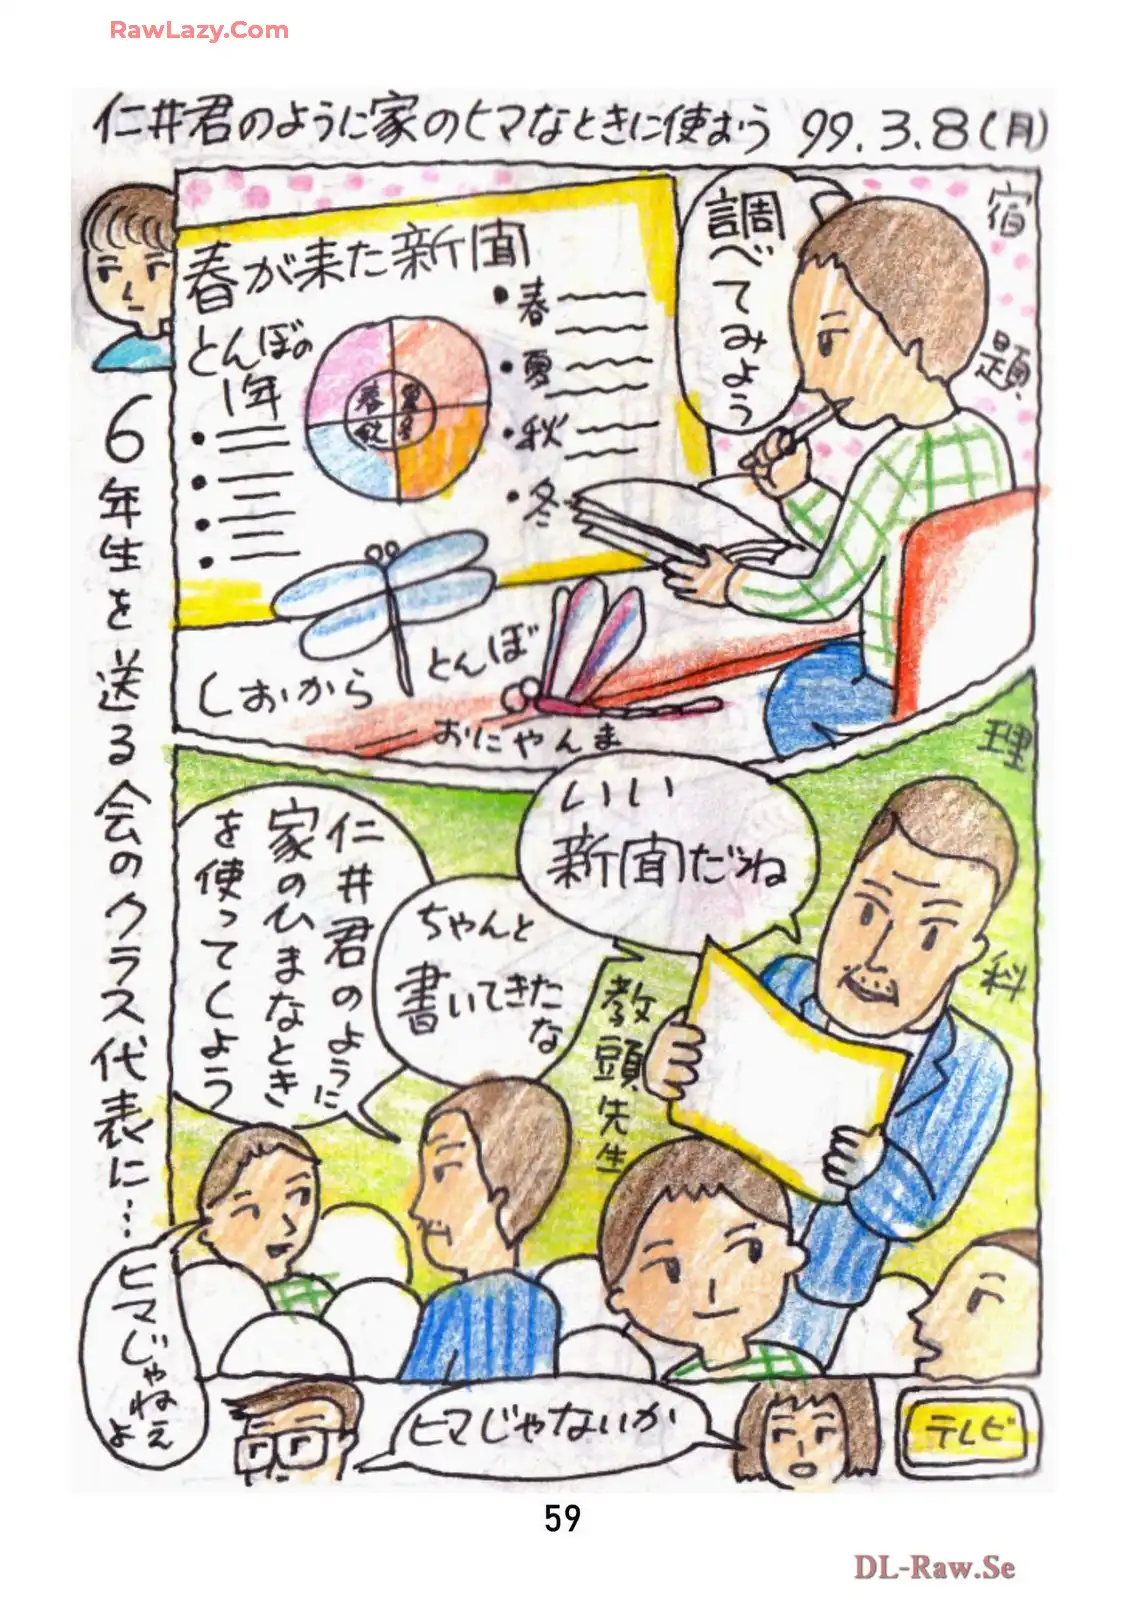 RawLazy.Com
仁井君のように家のヒマなときに使おう 99.3.8(月)
宿題
調べてみよう
春が来た新聞
とんぼの
1年
春
夏
秋
冬
・春
・夏
・秋
・冬
しおからとんぼ
おにやんま
理科
いい
新聞だね
教頭先生
ちゃんと
書いてきた
な
仁井君のように
家のひまなとき
を使ってくよう
6年生を送る会のクラス代表に…
ヒマじゃねえ
よ
ヒマじゃないか
テレビ
59
DL-Raw.Se